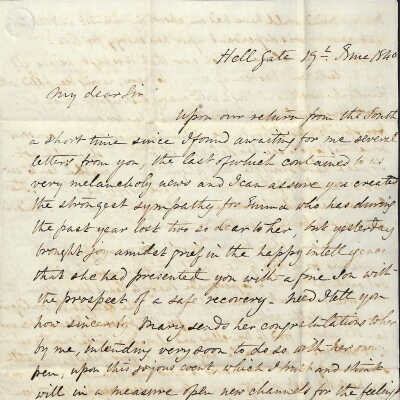 Hell Gate 19th June 1840
My dear Sir
Upon our return from the South
a short time since I found awaiting for me several
letters from you, the last of which contained to us
very melancholy news and I can assure you created
the strongest sympathy for Emma who has during
the past year lost two so dear to her, but yesterday
brought joy amidst grief in the happy intelligence
that she had presented you with a fine Son with
the prospect of a safe recovery - need I tell you
how sincerely Mary sends her congratulations to her
by me, intending very soon to do so with her own
pen, upon this joyous event, which I trust and think
will in a measure open new channels for the feelings